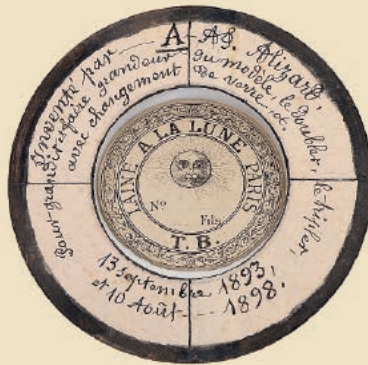 Inventé par — A — AS. Alizard
Pour grandir et faire grandeur du modèle, le doubler, le tripler,
avec changement de verre, &.
LAINE A LA LUNE PARIS
No Fils
T. B.
13 Septembre 1893,
et 10 Août — 1898.